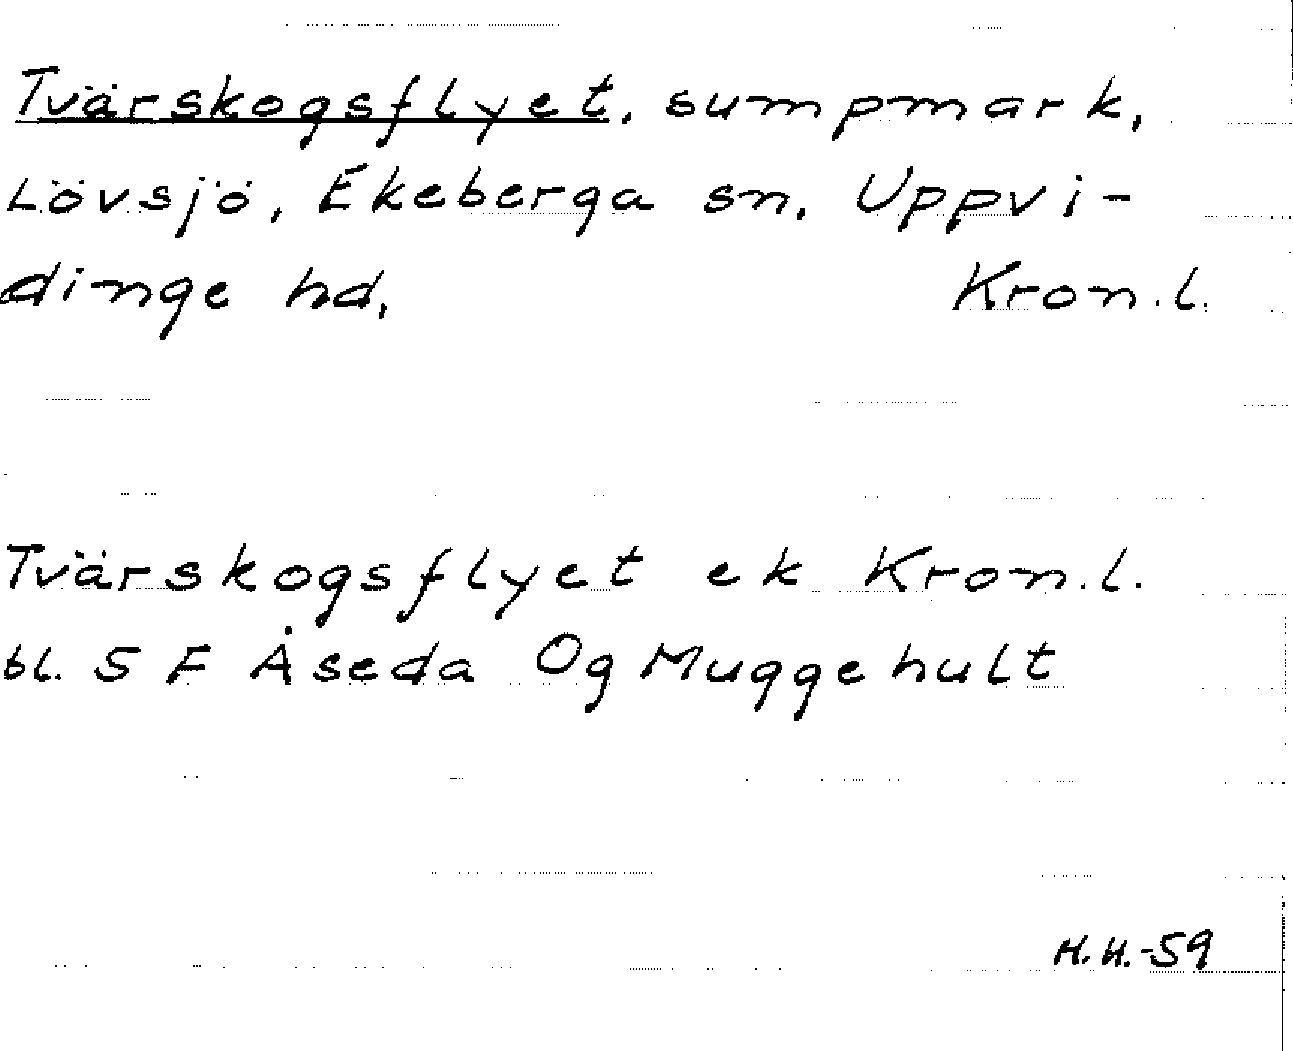 Tvärskogsflyet, sumpmark,
Lövsjö, Ekeberga sn, Uppvi-
dinge hd, Kron.l.
Tvärskogsflyet ek Kron.l.
bl. 5 F Åseda Og Muggehult
H.H.-59